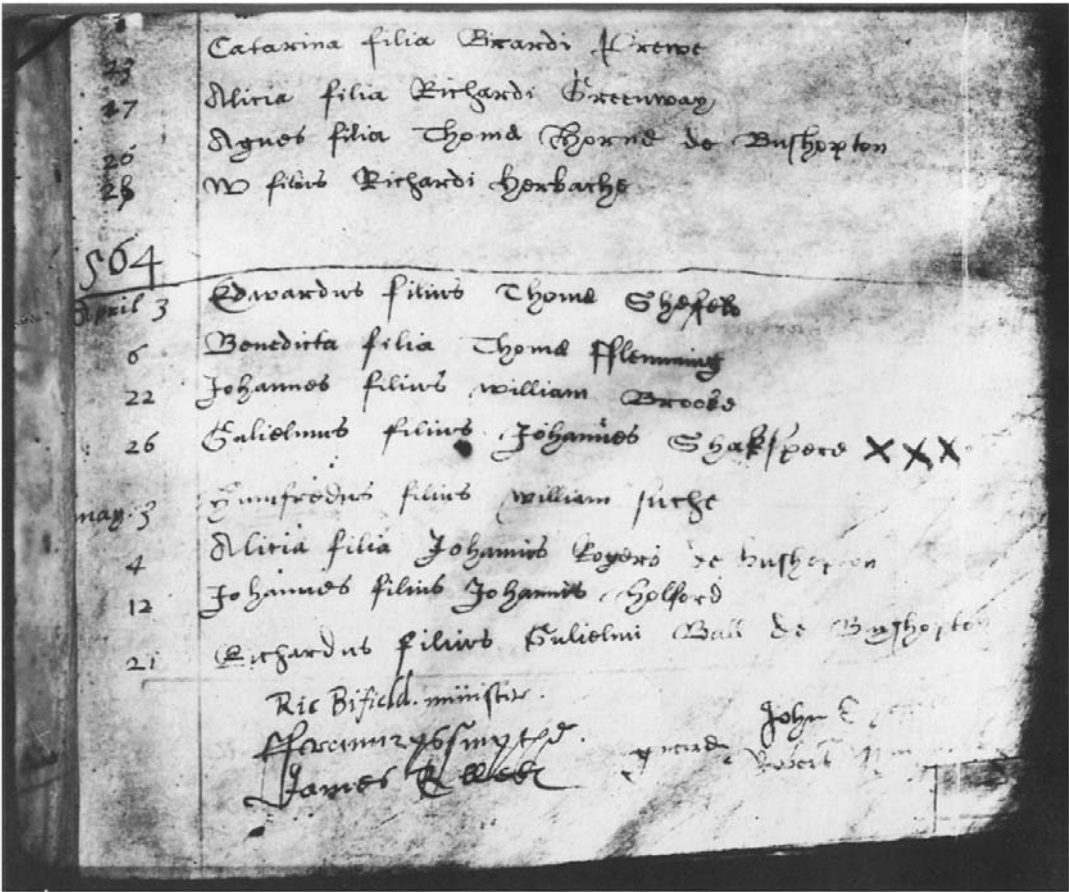 23 Catarina filia Ricardi
17 Alicia filia Richardi Greenway
26 Agnes filia Thomæ Thorne de Bushopton
28 W filius Richardi Herbache
1564
April 3 Edwardus filius Thomæ
6 Benedicta filia Thomæ fflemming
22 Johannes filius william Brooke
26 Gulielmus filius Johannes Shakspere XXX
may. 3 Humfredus filius william
4 Alicia filia Johannis Rogers de bushopton
12 Johannes filius Johannis Holford
21 Richardus filius Gulielmi Ball de Bushopton
Ric Bifield. minister.
John
James
Robert